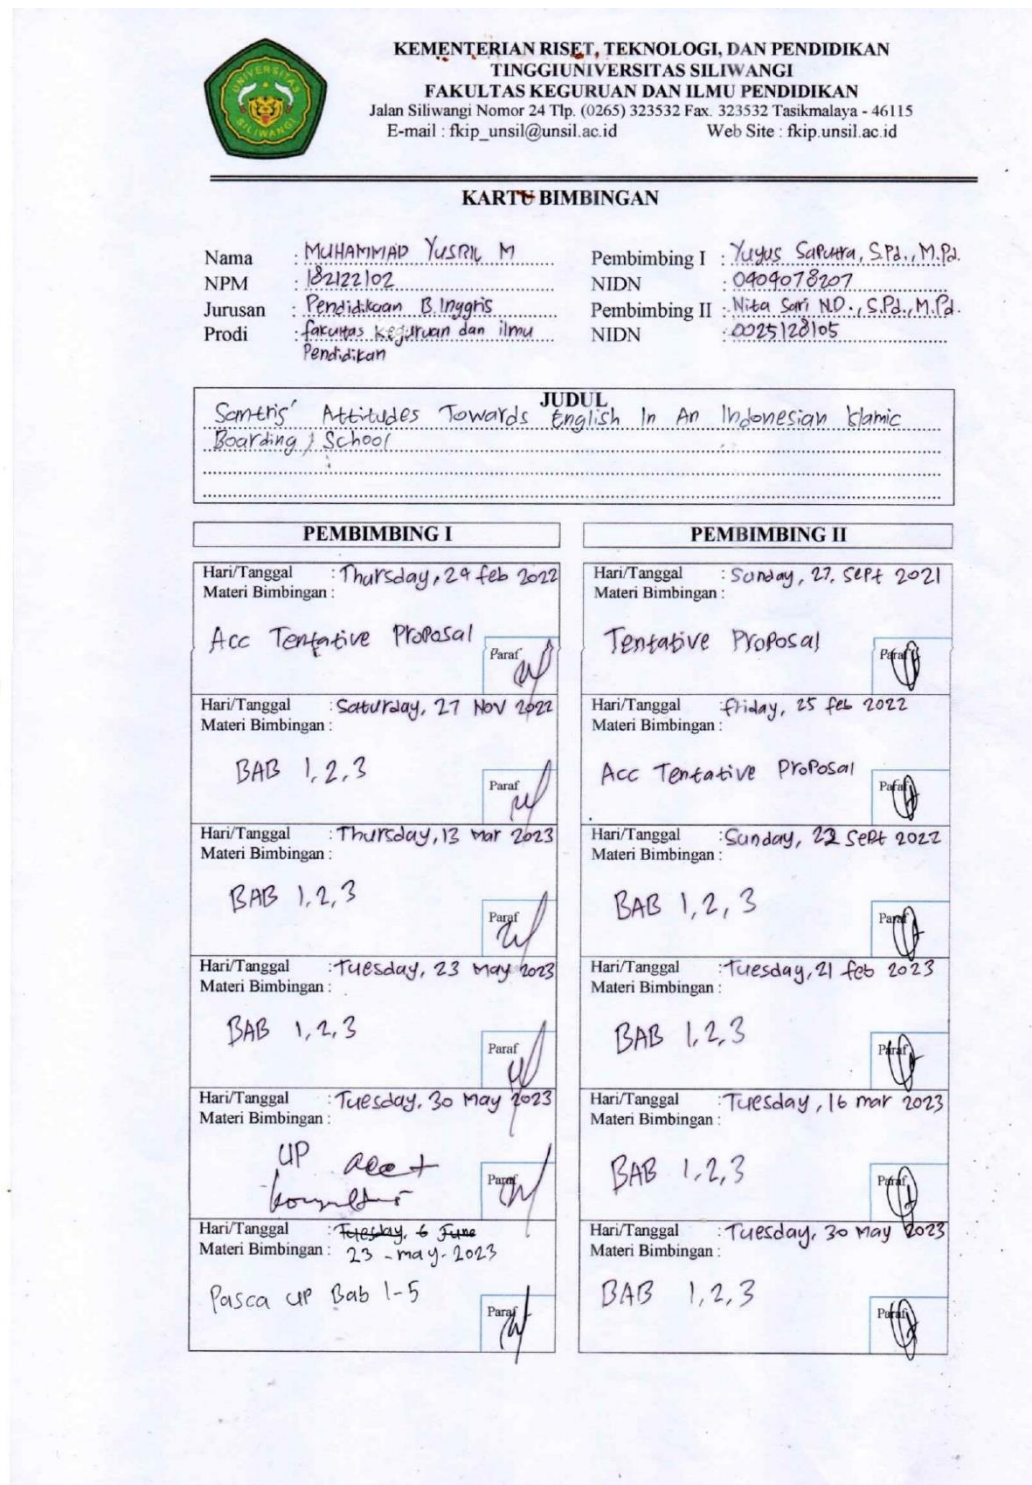 UNIVERSITAS
SILIWANGI
KEMENTERIAN RISET, TEKNOLOGI, DAN PENDIDIKAN
TINGGIUNIVERSITAS SILIWANGI
FAKULTAS KEGURUAN DAN ILMU PENDIDIKAN
Jalan Siliwangi Nomor 24 Tlp. (0265) 323532 Fax. 323532 Tasikmalaya - 46115
E-mail : fkip_unsil@unsil.ac.id Web Site : fkip.unsil.ac.id
KARTU BIMBINGAN
Nama : MUHAMMAD YUSRIL M
NPM : 182122102
Jurusan : Pendidikaan B. Inggris
Prodi : fakultas keguruan dan ilmu
Pendidikan
Pembimbing I : Yuyus Saputra, S.Pd., M.Pd.
NIDN : 0404078207
Pembimbing II : Nita Sari N.D., S.Pd., M.Pd.
NIDN : 0025128105
JUDUL
Santris' Attitudes Towards English In An Indonesian Islamic
Boarding School
PEMBIMBING I
Hari/Tanggal : Thursday, 24 feb 2022
Materi Bimbingan :
Acc Tentative Proposal
Paraf
Hari/Tanggal : Saturday, 27 Nov 2022
Materi Bimbingan :
BAB 1, 2, 3
Paraf
Hari/Tanggal : Thursday, 13 Mar 2023
Materi Bimbingan :
BAB 1, 2, 3
Paraf
Hari/Tanggal : Tuesday, 23 May 2023
Materi Bimbingan :
BAB 1, 2, 3
Paraf
Hari/Tanggal : Tuesday, 30 May 2023
Materi Bimbingan :
UP
Paraf
Hari/Tanggal : Tuesday, 6 June
Materi Bimbingan : 23 - may - 2023
Pasca UP Bab 1-5
Paraf
PEMBIMBING II
Hari/Tanggal : Sunday, 27, Sept 2021
Materi Bimbingan :
Tentative Proposal
Paraf
Hari/Tanggal : friday, 25 feb 2022
Materi Bimbingan :
Acc Tentative Proposal
Paraf
Hari/Tanggal : Sunday, 22 Sept 2022
Materi Bimbingan :
BAB 1, 2, 3
Paraf
Hari/Tanggal : Tuesday, 21 feb 2023
Materi Bimbingan :
BAB 1, 2, 3
Paraf
Hari/Tanggal : Tuesday, 16 mar 2023
Materi Bimbingan :
BAB 1, 2, 3
Paraf
Hari/Tanggal : Tuesday, 30 may 2023
Materi Bimbingan :
BAB 1, 2, 3
Paraf